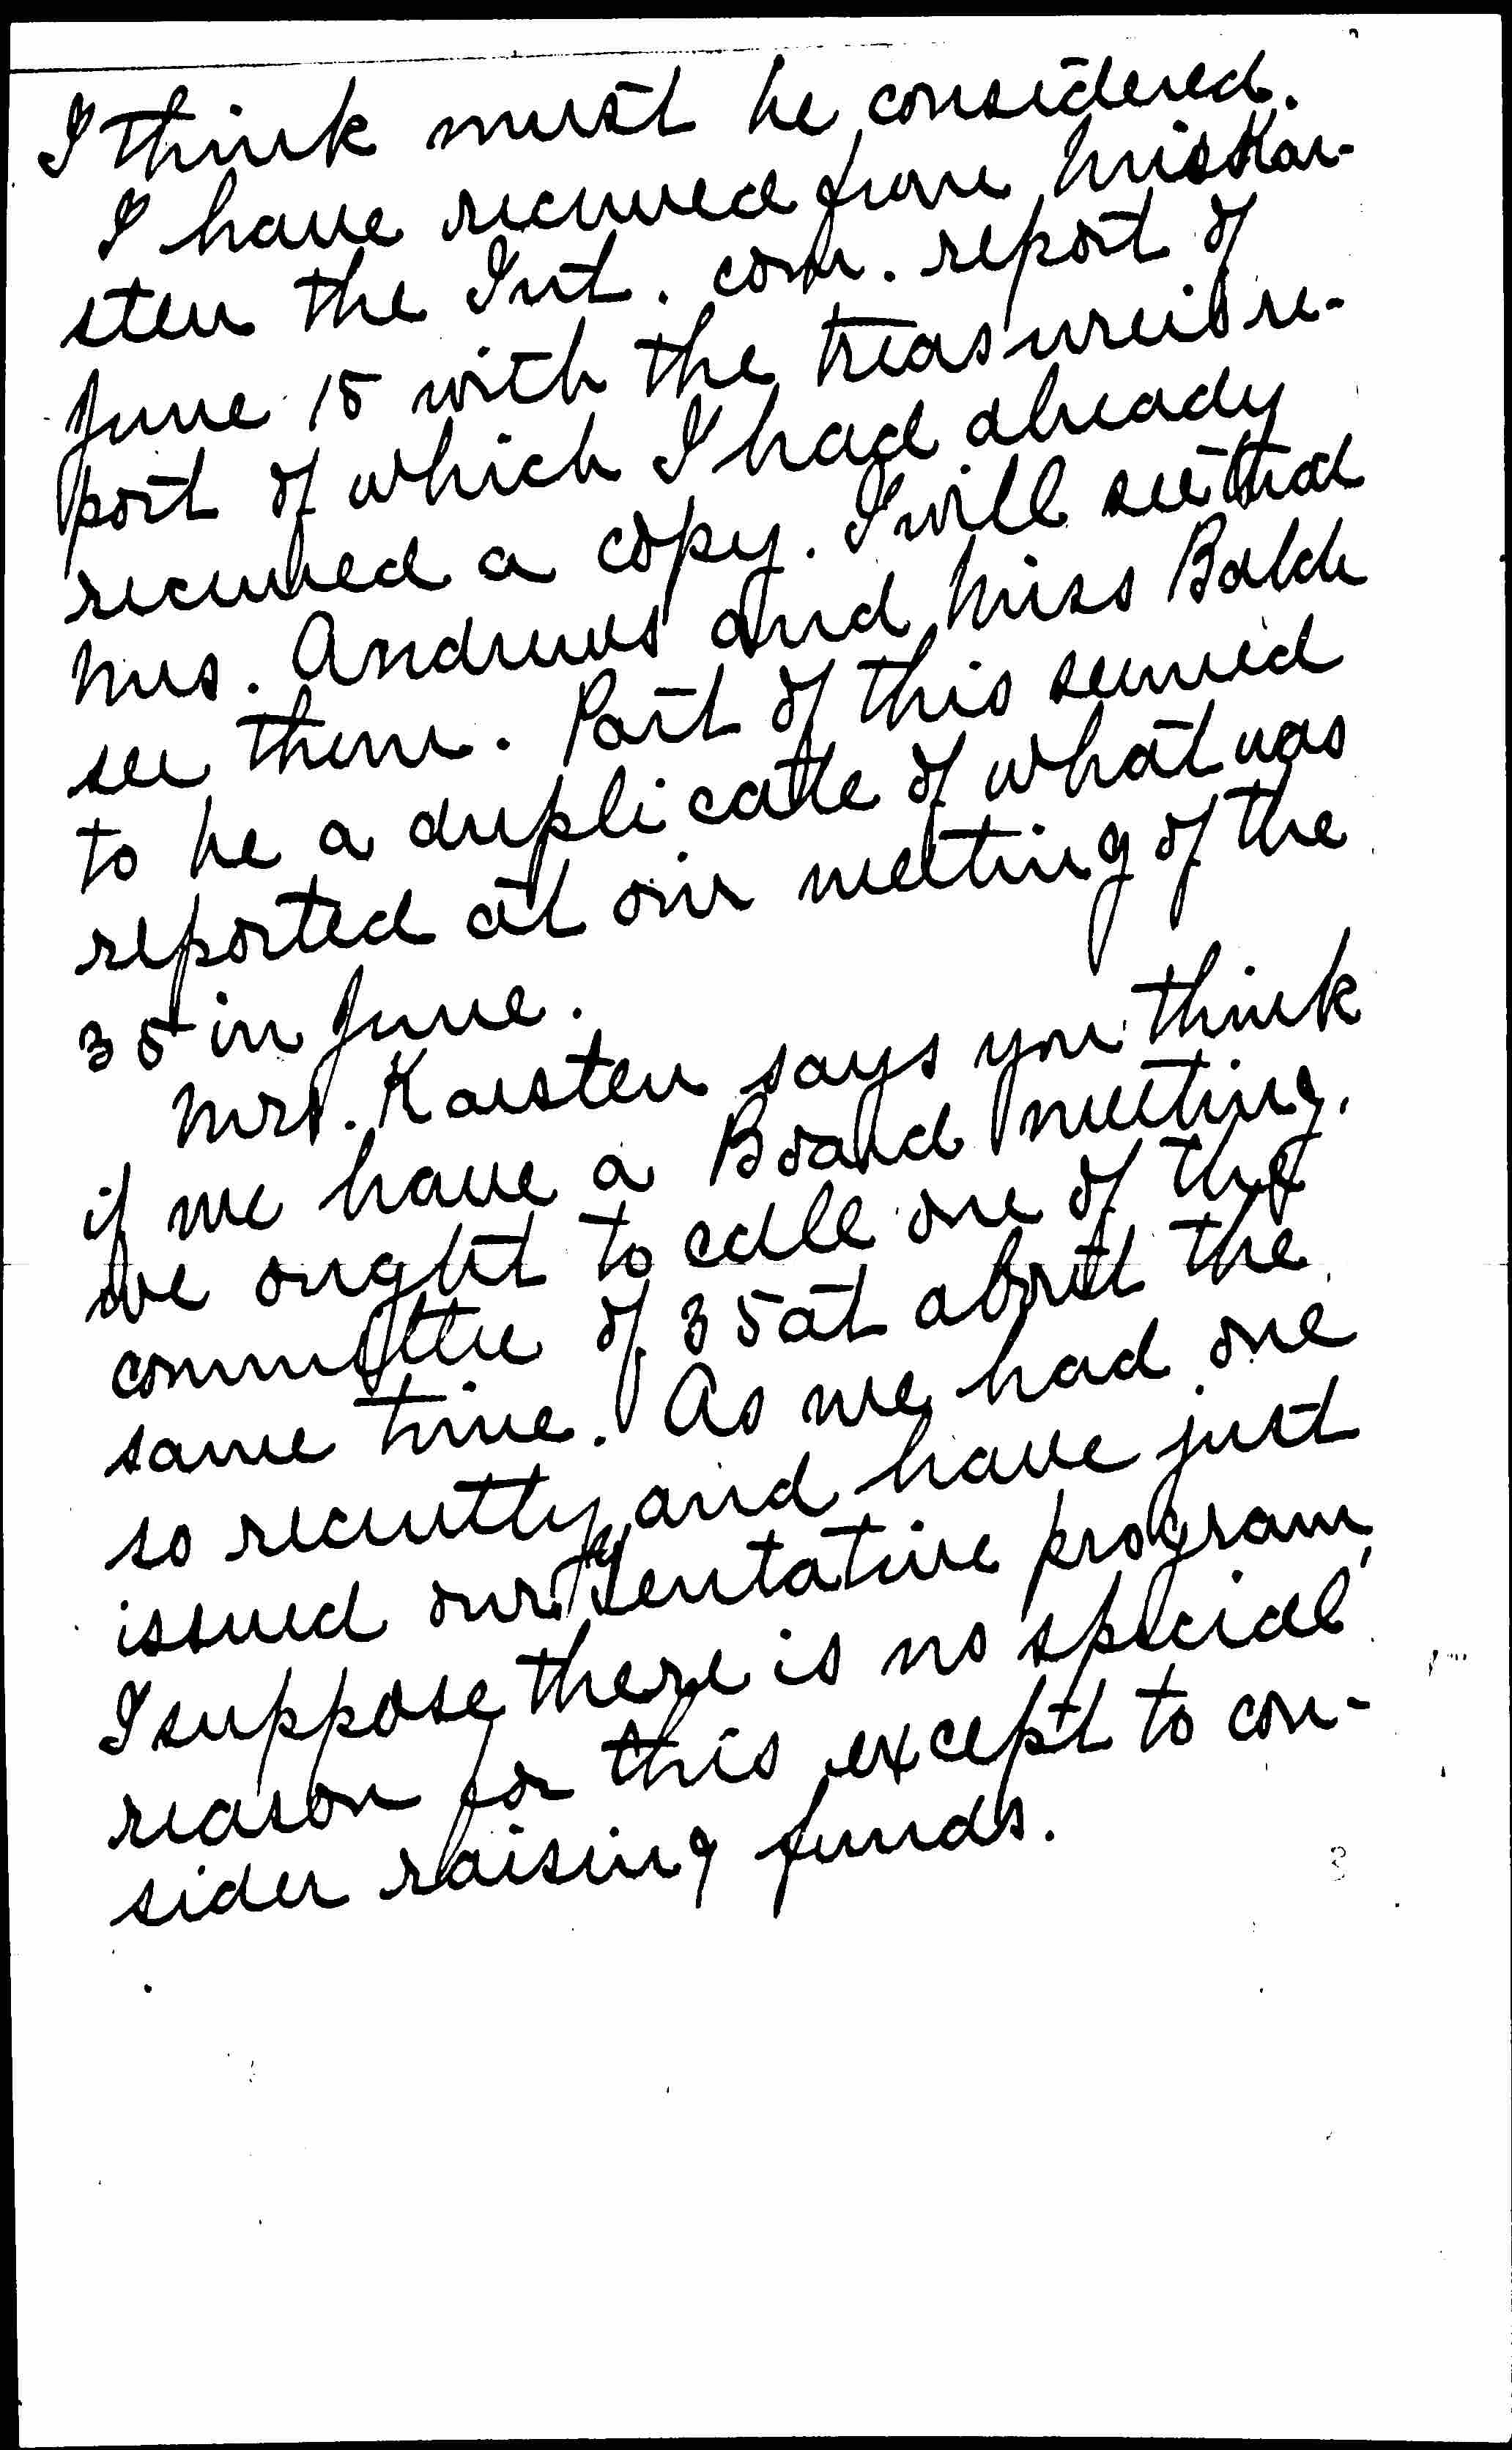 I think must be considered.
I have received from Miss Kar-
sten the Int. com. report of
June 15 with the treasurer's re-
port of which I had already
received a copy. I will see that
Mrs. Andrews and Miss Balch
see them. Part of this seemed
to be a duplicate of what was
reported at our meeting of the
35 in June.
Mrs. Karsten says you think
if we have a Board meeting,
we ought to call one of the
committee of 35 at about the
same time. As we had one
so recently, and have just
issued our tentative program,
I suppose there is no special
reason for this except to con-
sider raising funds.